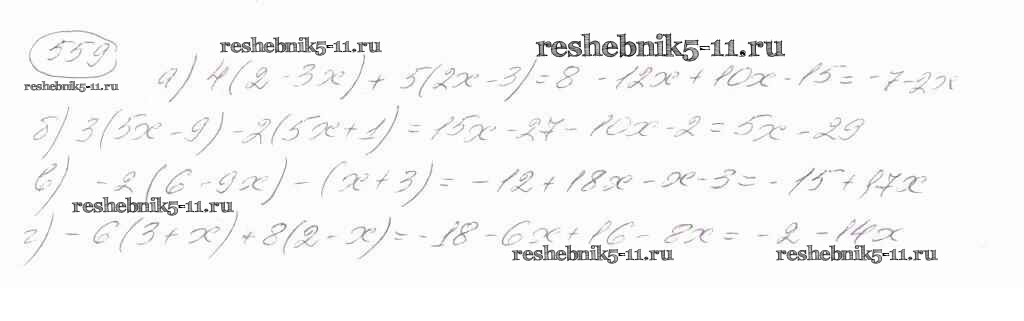 559
reshebnik5-11.ru
reshebnik5-11.ru
reshebnik5-11.ru
а) 4(2-3x)+5(2x-3)=8-12x+10x-15=-7-2x
б) 3(5x-9)-2(5x+1)=15x-27-10x-2=5x-29
в) -2(6-9x)-(x+3)=-12+18x-x-3=-15+17x
reshebnik5-11.ru
г) -6(3+x)+8(2-x)=-18-6x+16-8x=-2-14x
reshebnik5-11.ru
reshebnik5-11.ru